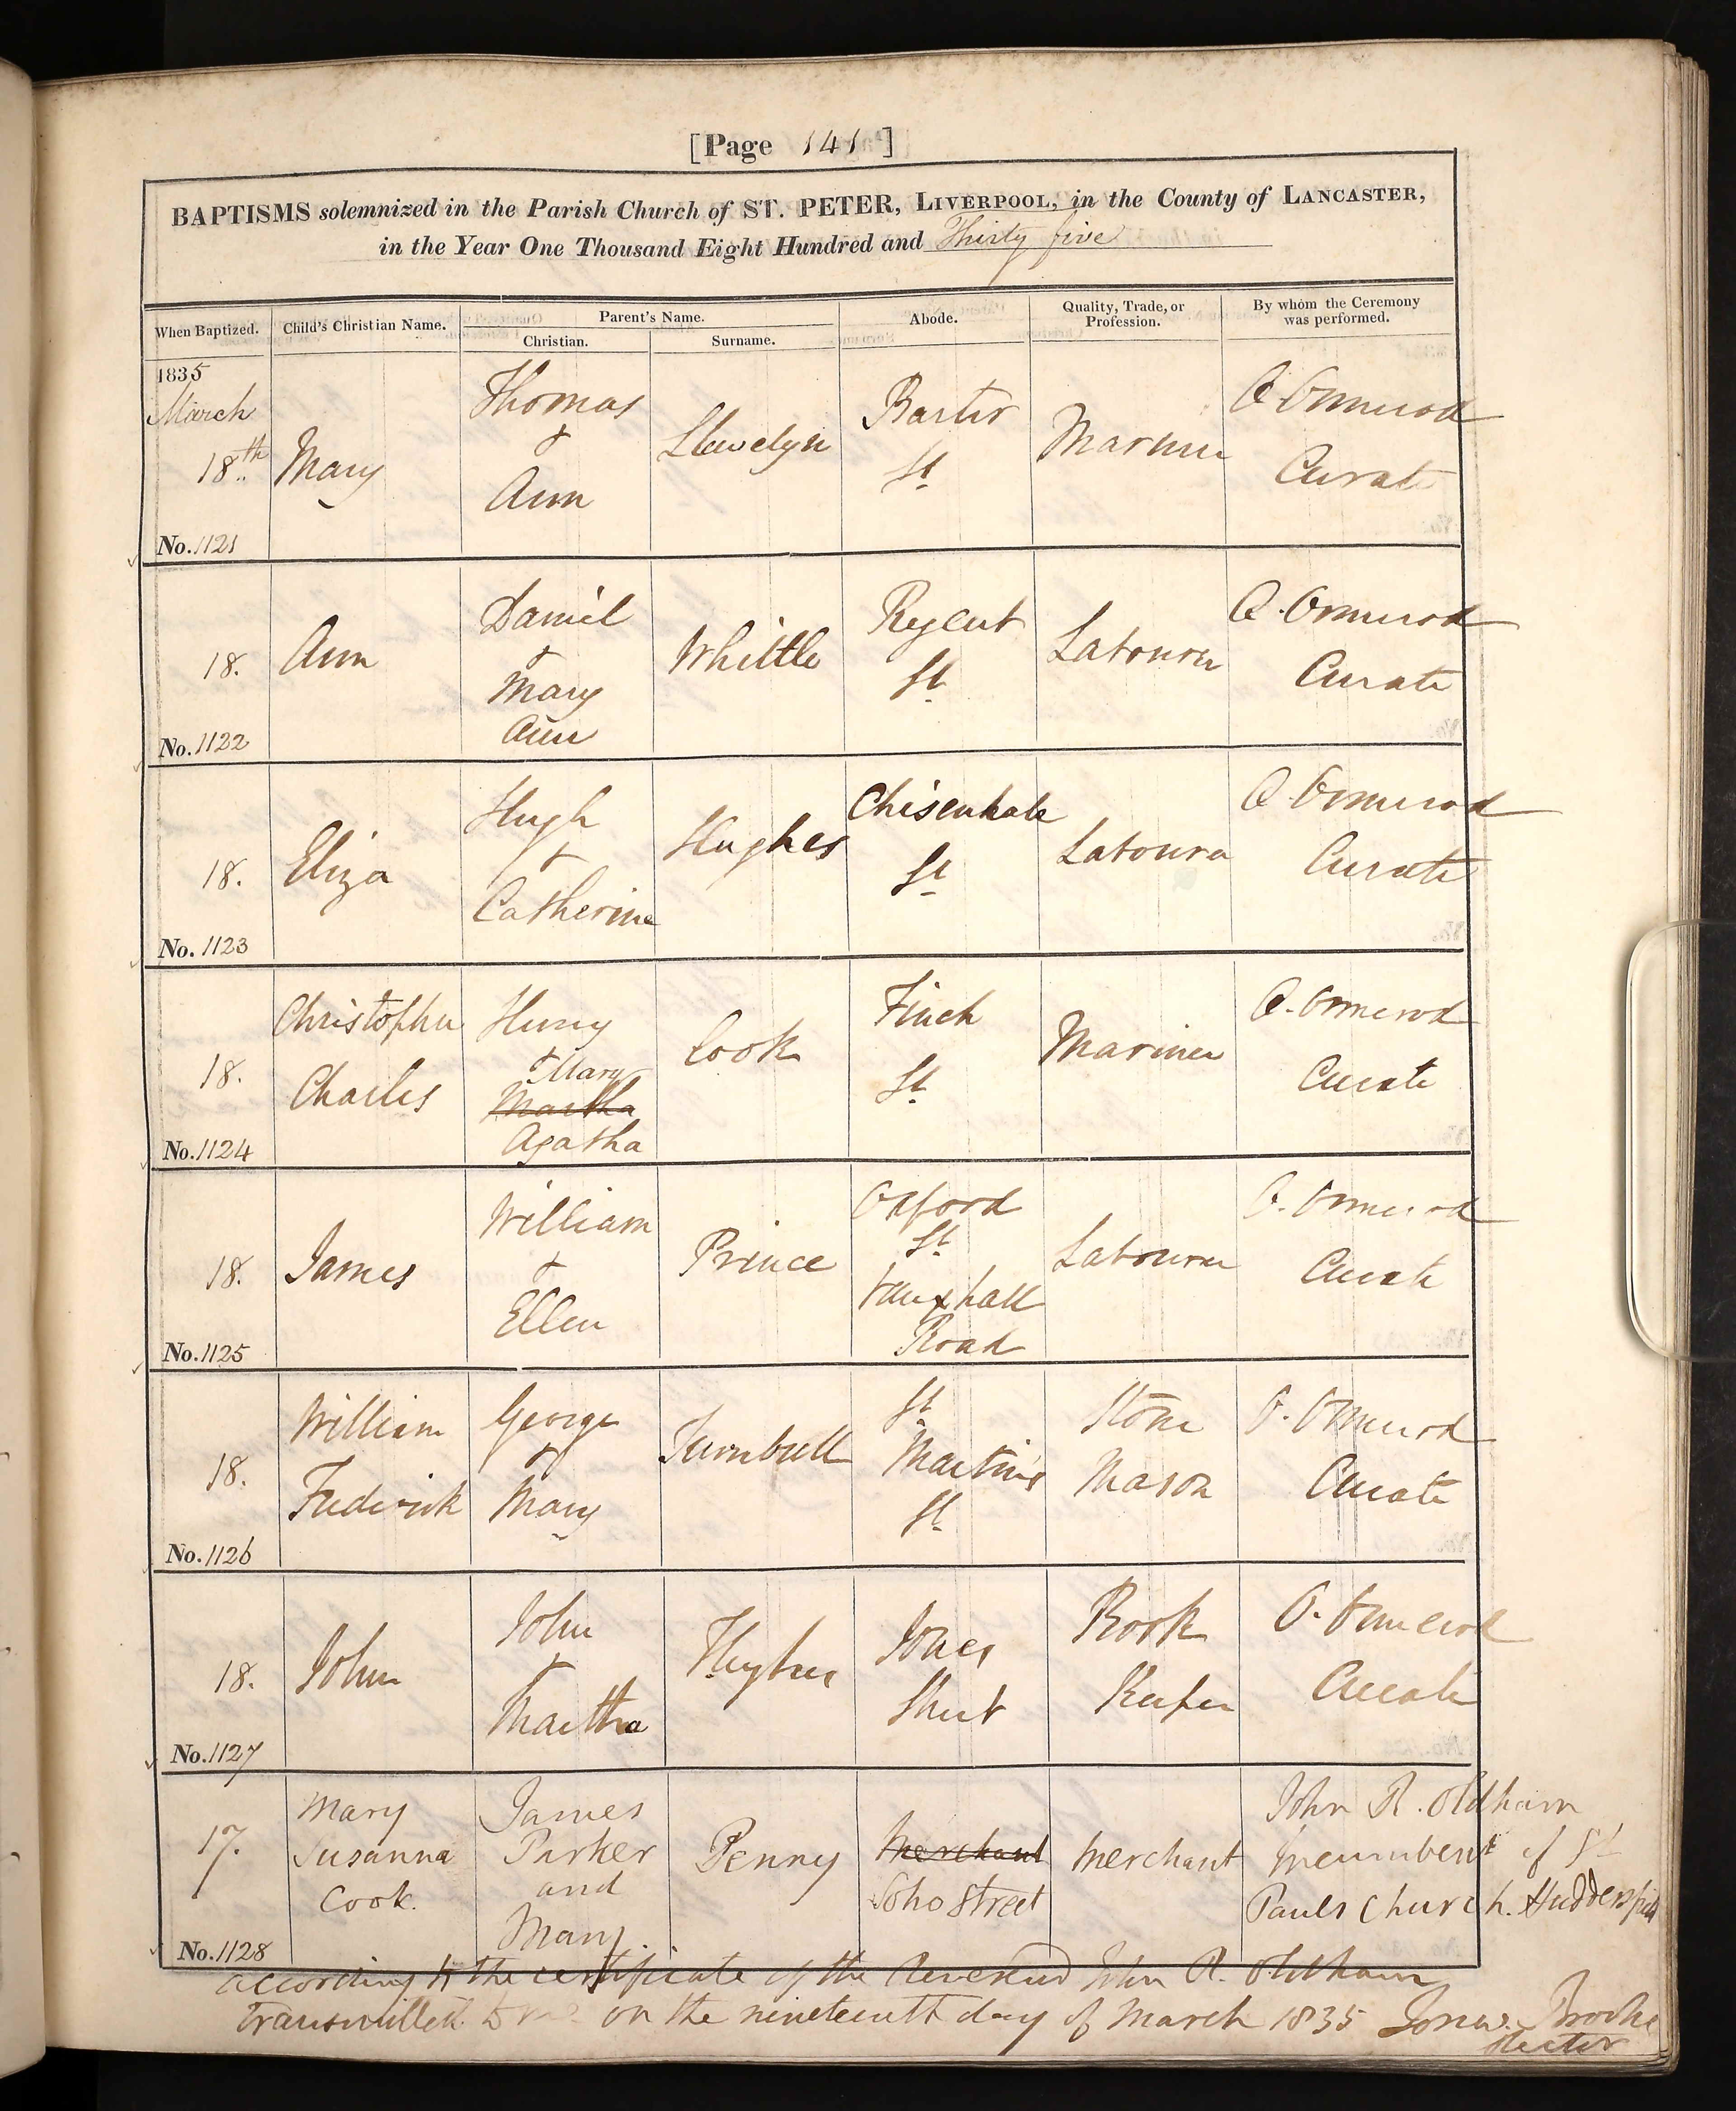 [Page 141]
BAPTISMS solemnized in the Parish Church of ST. PETER, LIVERPOOL, in the County of LANCASTER,
in the Year One Thousand Eight Hundred and Thirty five
When Baptized. Child's Christian Name. Parent's Name. Christian. Surname. Abode. Quality, Trade, or Profession. By whom the Ceremony was performed.
1835
March
18th
No. 1121
Mary
Thomas
&
Ann
Llewelyn
Barter
St
Mariner
Ormerod
Curate
18.
No. 1122
Ann
Daniel
&
Mary
Ann
Whittle
Regent
St
Labourer
Ormerod
Curate
18.
No. 1123
Eliza
Hugh
&
Catherine
Hughes
Chisenhale
St
Labourer
Ormerod
Curate
18.
No. 1124
Christopher
Charles
Henry
& Mary
Martha
Agatha
Cook
Finch
St
Mariner
Ormerod
Curate
18.
No. 1125
James
William
&
Ellen
Prince
Oxford
St
Vauxhall
Road
Labourer
Ormerod
Curate
18.
No. 1126
William
Frederick
George
&
Mary
Turnbull
St
Martins
St
Stone
Mason
Ormerod
Curate
18.
No. 1127
John
John
&
Martha
Hughes
Jones
Street
Book
Keeper
Ormerod
Curate
17.
No. 1128
Mary
Susanna
Cook.
James
Parker
and
Mary.
Penny
Merchant
Soho Street
Merchant
John R. Oldham
Incumbent of St
Pauls Church. Huddersfield
according to the certificate of the Reverend John R. Oldham
transmitted to me on the nineteenth day of March 1835 Jonn. Brooks
Rector